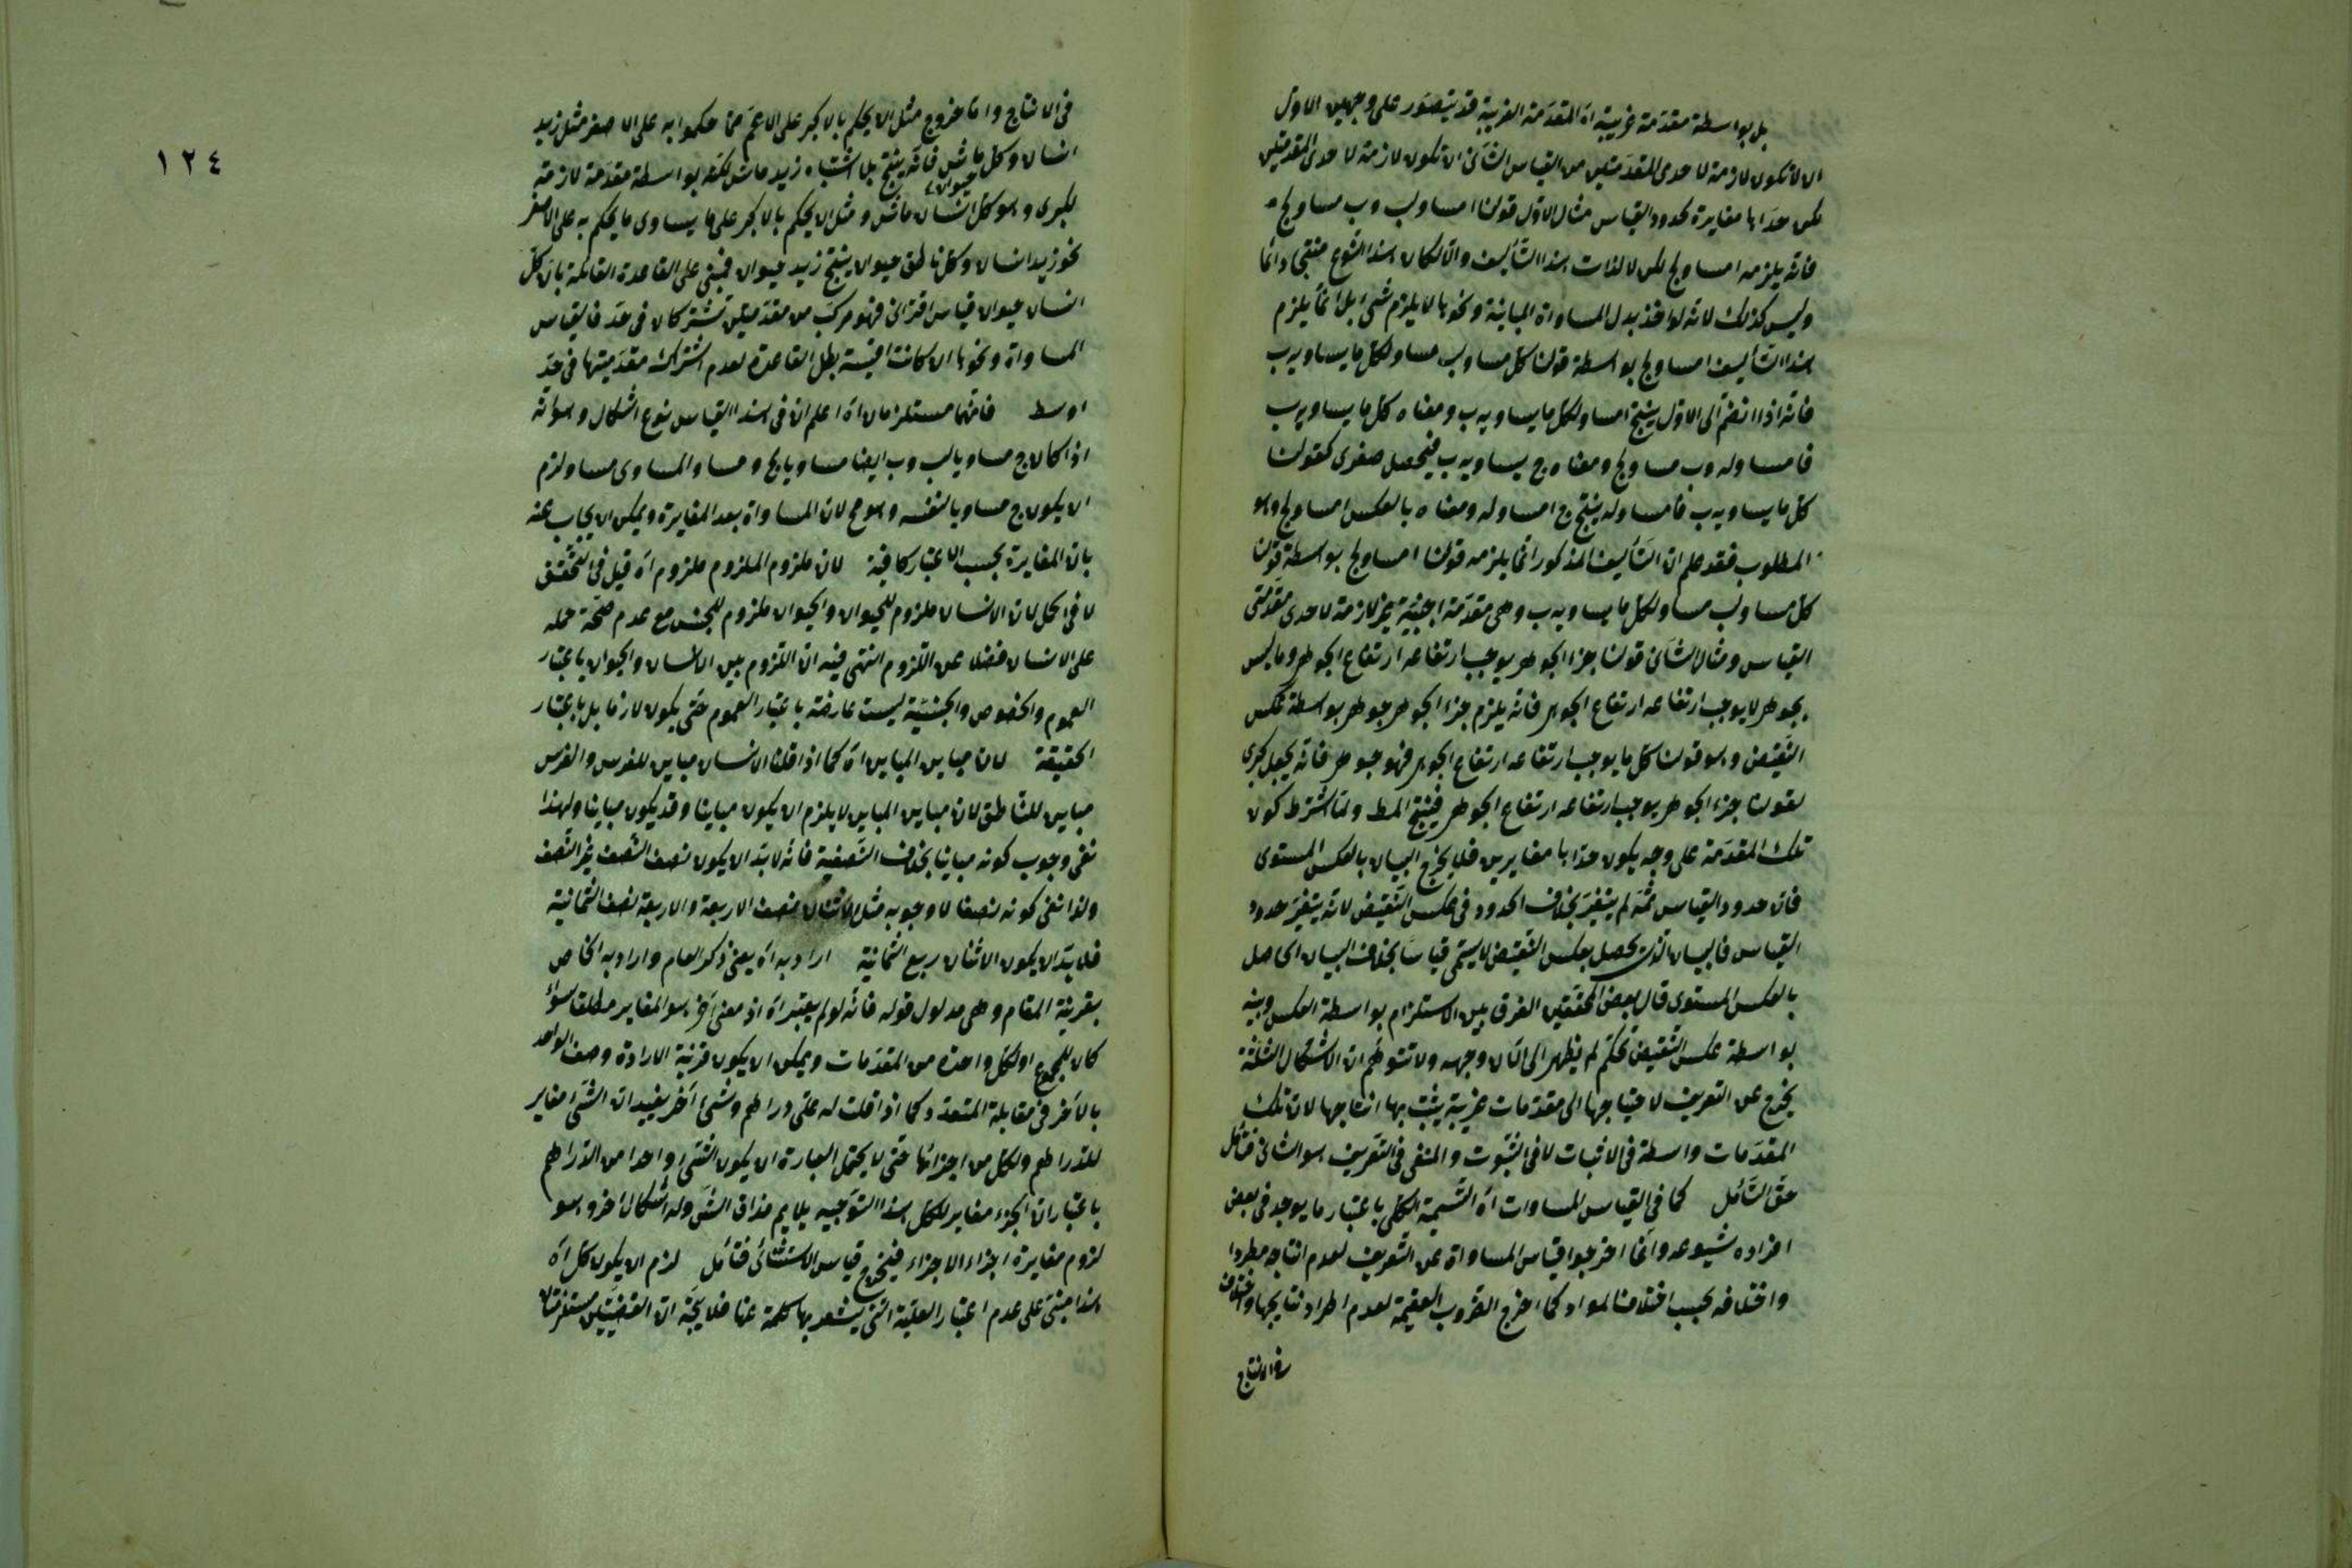 بل بواسطة مقدمة غريبة اه المقدمة الغريبة قد يتصور على وجهين الاول
ان لا تكون لازمة لاحدى المقدمتين من القياس الثانى ان تكون لازمة لاحدى المقدمتين
لكن حداها مغايرة لحدود القياس مثال الاول قولنا ا مساو لب وب مساو لج
فانه يلزمه ا مساو لج لكن لا لذات هذا التأليف والا لكان هذا النوع منتجا دائما
وليس كذلك لانه لو اخذ بدل المساواة المباينة ونحوها لا يلزم شئ بل انما يلزم
هذا التأليف ا مساو لج بواسطة قولنا كل مساو لب مساو لكل ما يساويه ب
فانه اذا انضم الى الاول ينتج ا مساو لكل ما يساويه ب ومعناه كل ما يساويه ب
فا مساو له وب مساو لج ومعناه ج يساويه ب فيحصل صغرى لقولنا
كل ما يساويه ب فا مساو له ينتج ج ا مساو له ومعناه بالعكس ا مساو لج وهو
المطلوب فقد علم ان التأليف المذكور انما يلزمه قولنا ا مساو لج بواسطة قولنا
كل مساو لب مساو لكل ما يساويه ب وهى مقدمة اجنبية غير لازمة لاحدى مقدمتى
القياس ومثال الثانى قولنا جزء الجوهر يوجب ارتفاعه ارتفاع الجوهر وما ليس
بجوهر لا يوجب ارتفاعه ارتفاع الجوهر فانه يلزم جزء الجوهر جوهر بواسطة عكس
النقيض وهو قولنا كل ما يوجب ارتفاعه ارتفاع الجوهر فهو جوهر فانه يجعل كبرى
لقولنا جزء الجوهر يوجب ارتفاعه ارتفاع الجوهر فينتج المط ولما اشترط كون
تلك المقدمة على وجه يكون حداها مغايرين فلا يخرج البيان بالعكس المستوى
فان حدود القياس ثمه لم يتغير بخلاف الحدود فى عكس النقيض لانه يتغير حدود
القياس فالبيان الذى يحصل بعكس النقيض لا يسمى قياسا بخلاف البيان الحاصل
بالعكس المستوى قال بعض المحققين الفرق بين الاستلزام بواسطة العكس وبينه
بواسطة عكس النقيض تحكم لم يظهر الى الآن وجهه ولا تتوهم ان الاشكال الثلثة
يخرج عن التعريف لاحتياجها الى مقدمات غريبة يثبت بها انتاجها لان تلك
المقدمات واسطة فى الاثبات لا فى الثبوت والمنفى فى التعريف هو الثانى فتأمل
حق التأمل كما فى القياس المساوات اه التسمية الكلى باعتبار ما يوجد فى بعض
افراده شيوعه وانما اخرجوا قياس المساواة عن التعريف لعدم انتاجه مطردا
واختلافه بحسب اختلاف المواد كما اخرج الضروب العقيمة لعدم اطراد نتايجها واختلاف
فى الانتاج
١٢٤
فى الانتاج واما خروج مثل ان يحكم بالاكبر على الاعم مما حكموا به على الاصغر مثل زيد
انسان وكل حيوان ماش فانه ينتج بلا اشتباه زيد ماش لكنه بواسطة مقدمة لازمة
لكبرى وهو كل انسان ماش ومثل ان يحكم بالاكبر على ما يساوى ما يحكم به على الاصغر
نحو زيد انسان وكل ناطق حيوان ينتج زيد حيوان فمبنى على القاعدة القائلة بان كل
انسان حيوان قياس اقترانى فهو مركب من مقدمتين تشتركان فى حد فالقياس
المساواة ونحوها ان كانت اقيسة بطل القاعدة لعدم اشتراك مقدمتيها فى حد
اوسط فانهما مستلزمان اه اعلم ان فى هذا القياس نوع اشكال وهو انه
اذا كان ج مساويا لب وب ايضا مساويا لج ومساو المساوى مساو لزم
ان يكون ج مساويا لنفسه وهو مح لان المساواة بعد المغايرة ويمكن ان يجاب عنه
بان المغايرة بحسب الاعتبار كافية لان ملزوم الملزوم ملزوم اه قيل فى التحقق
لا فى الحمل لان الانسان ملزوم للحيوان والحيوان ملزوم للجنس مع عدم صحة حمله
على الانسان فضلا عن اللزوم انتهى فيه ان اللزوم بين الانسان والحيوان باعتبار
العموم والخصوص والجنسية ليست عارضة باعتبار العموم حتى يكون لازما بل باعتبار
الحقيقة لان مباين المباين اه كما اذا قلنا الانسان مباين للفرس والفرس
مباين للناطق لان مباين المباين لا يلزم ان يكون مباينا وقد يكون مباينا ولهذا
نفى وجوب كونه مباينا بخلاف النصفية فانه لا بد ان يكون نصف النصف غير النصف
ولذا نفى كونه نصفا لا وجوبه مثل الاثنان نصف الاربعة والاربعة نصف الثمانية
فلا بد ان يكون الاثنان ربع الثمانية اراد به اه يعنى ذكر العام واراد به الخاص
بقرينة المقام وهى مدلول قوله فانه لو لم يعتبر اه اذ معنى آخر هو المغاير مطلقا سواء
كان للمجموع او لكل واحدة من المقدمات ويمكن ان يكون قرينة الارادة وصف الواحد
بالآخر فى مقابلة المتعدد كما اذا قلت له على دراهم وشئ آخر يفيد ان الشئ مغاير
للدراهم ولكل من اجزائها حتى لا يحتمل العبارة ان يكون الشئ واحدا من الدراهم
باعتبار ان الجزء مغاير للكل هذا التوجيه يلايم مذاق الشى وله اشكال آخر وهو
لزوم مغايرة اجزاء الاجزاء فيخرج قياس الاستثنائى فتأمل لزم ان يكون كل اه
هذا مبنى على عدم اعتبار العلية التى يشعر بها كلمة عنها فلا يتجه ان القضيتين مستلزمتان